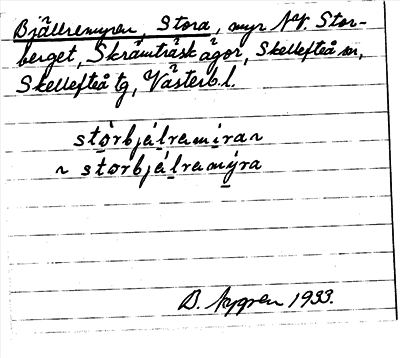 Bjällremyren, Stora, myr NV. Stor-
berget, Skråmträsk ägor, Skellefteå sn,
Skellefteå tg, Västerb. l.
storbjálramíra ~
~ storbjálramýra
B. Nygren 1933.